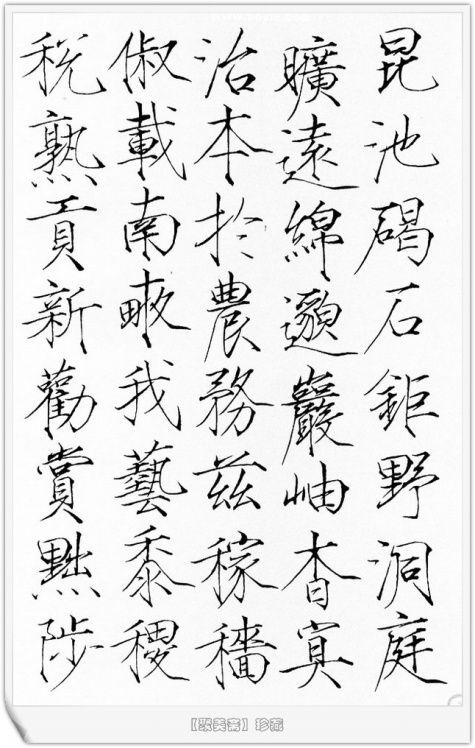 昆池碣石鉅野洞庭
曠遠綿邈巖岫杳冥
治本於農務茲稼穡
俶載南畝我藝黍稷
稅熟貢新勸賞黜陟
珍藏